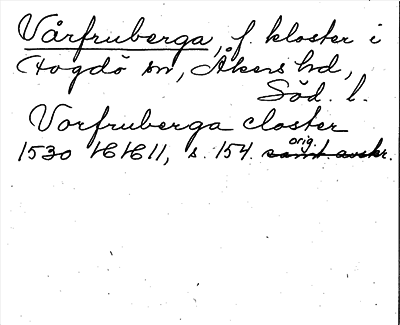 Vårfruberga, f. kloster i
Hogdö sn, Åkers hd,
Söd. l.
Vorfruberga closter
1530 HH 11, s. 154. orig. samt avskr.